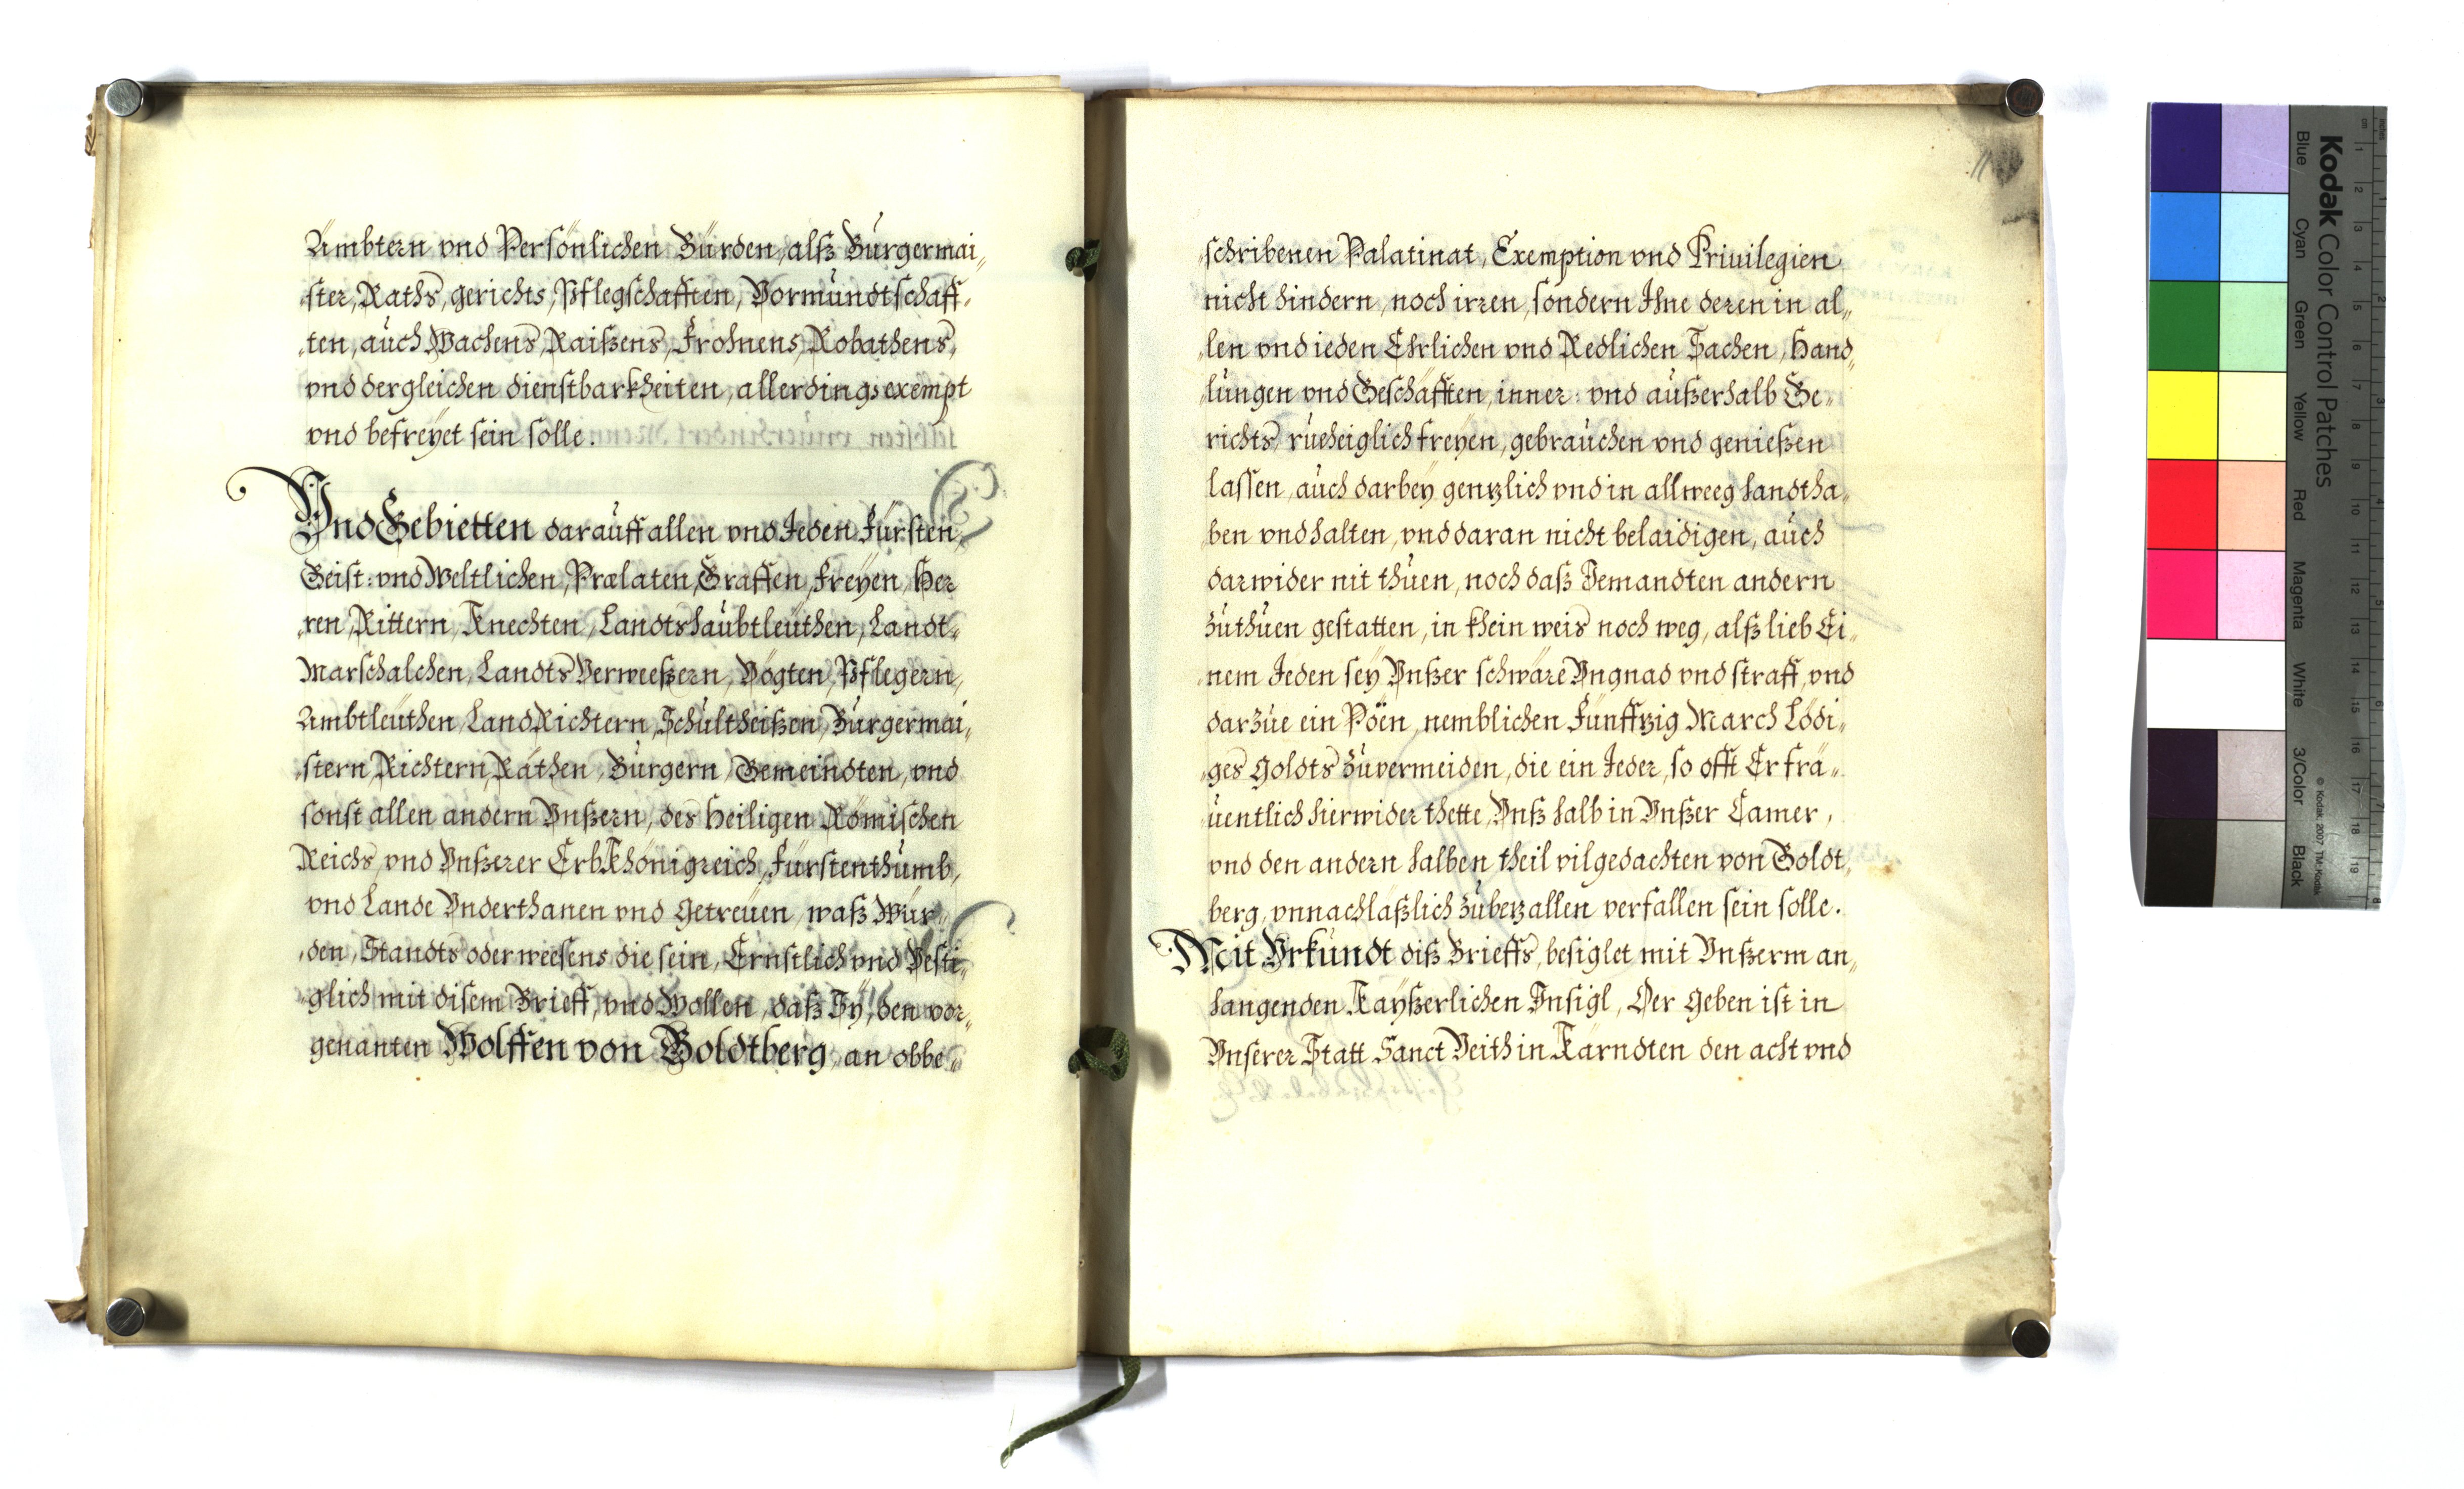 Ämbtern vnd Persönlichen Bürden, alß Burgermai„
ster, Raths, gerichts, Pflegschafften, Vormundtschaff„
„ten, auch Wachens, Raißens, Frohnens, Robathens,
vnd dergleichen dienstbarkheiten, allerdings exempt
vnd befreyet sein solle.
Vnd Gebietten darauff allen vnd Jeden Fürsten,
Geist: vnd Weltlichen, Prælaten, Graffen, Freyen, Her
„ren, Rittern, Knechten, Landtshaubtleuthen, Landt„
Marschalchen, Landts Verweeßern, Vögten, Pflegern,
Ambtleuthen, LandRichtern, Schultheißen, Burgermai„
„stern, Richtern, Räthen, Burgern, Gemeindten, vnd
sonst allen andern Vnßern, des Heiligen Römischen
Reichs, vnd Vnßerer ErbKhönigreich, Fürstenthumb,
vnd Lande Vnderthanen vnd Getreüen, waß Wür„
„den, Standts oder weesens die sein, Ernstlich vnd Vesti„
„glich mit disem Brieff, vnd Wollen, daß Sy, den vor„
genanten Wolffen von Goldtberg, an obbe„
„schribenen Palatinat, Exemption vnd Priuilegien
nicht hindern, noch irren, sondern Ihne deren in al„
„len vnd ieden Ehrlichen vnd Redlichen Sachen, Hand„
„lungen vnd Geschäfften, inner: vnd außerhalb Ge„
richts, rueheiglich freyen, gebrauchen vnd genießen
lassen, auch darbey gentzlich vnd in allweeg handtha„
„ben vnd halten, vnd daran nicht belaidigen, auch
darwider nit thuen, noch daß Jemandten andern
zuthuen gestatten, in khein weis noch weg, alß lieb Ei„
„nem Jeden sey Vnßer schwäre Vngnad vnd straff, vnd
darzue ein Pöen, nemblichen Fünfftzig March Lödi„
„ges Goldts zuvermeiden, die ein Jeder, so offt Er frä„
„uentlich hierwider thette, Vnß halb in Vnßer Camer,
vnd den andern halben theil vilgedachten von Goldt„
berg, vnnachläßlich zubetzallen verfallen sein solle.
Mit Vrkundt diß Brieffs, besiglet mit Vnßerm an„
hangenden Kayßerlichen Insigl, Der Geben ist in
Vnserer Statt Sanct Veith in Kärndten den acht vnd
Kodak Color Control Patches
Blue Cyan Green Yellow Red Magenta White 3/Color Black
© Kodak, 2007 TM: Kodak
cm 1 2 3 4 5 6 7 8 9 10 11 12 13 14 15 16 17 18 19
inches 1 2 3 4 5 6 7 8